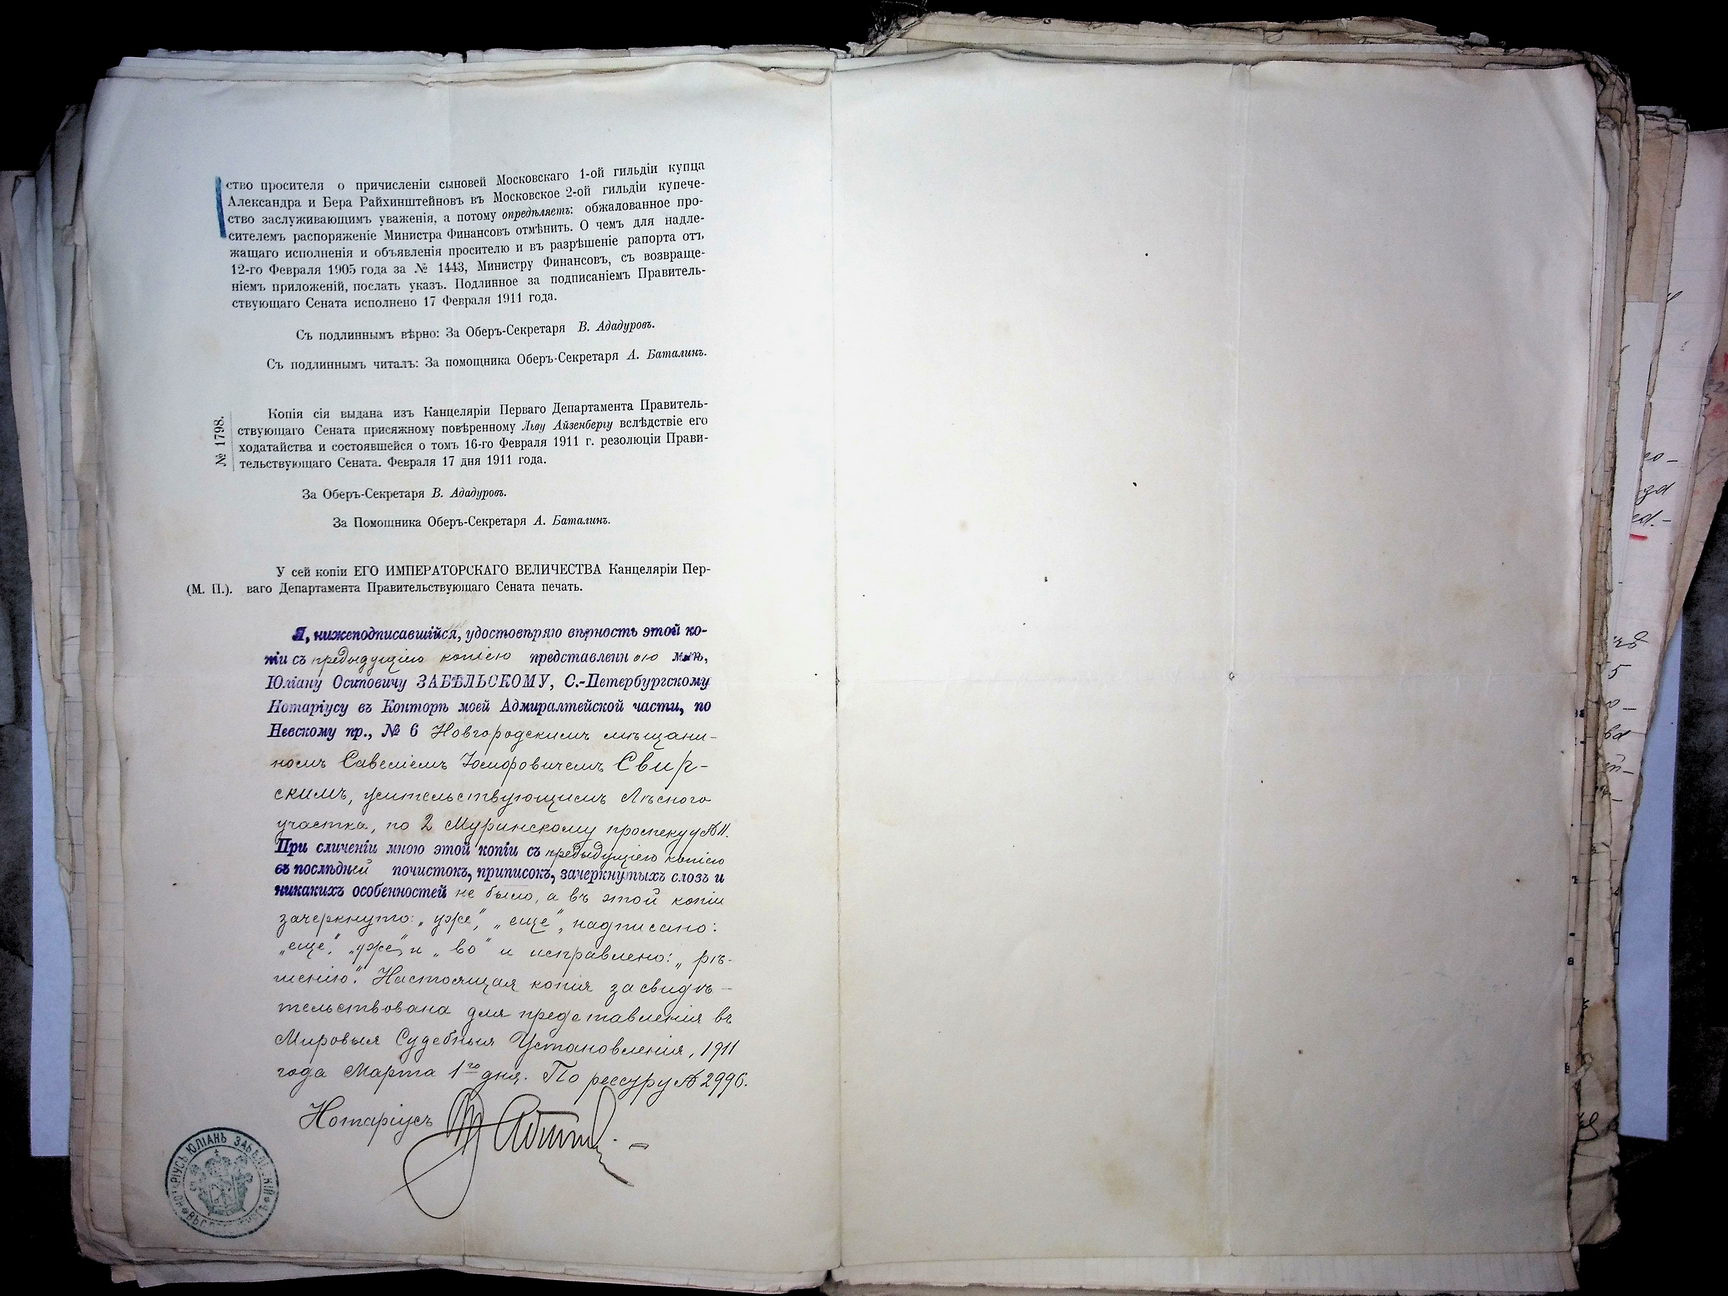 ство просителя о причисленіи сыновей Московскаго 1-ой гильдіи купца
Александра и Бера Райхинштейновъ въ Московское 2-ой гильдіи купече-
ство заслуживающимъ уваженія, а потому опредѣляетъ: обжалованное про-
сителемъ распоряженіе Министра Финансовъ отмѣнить. О чемъ для надле-
жащаго исполненія и объявленія просителю и въ разрѣшеніе рапорта отъ
12-го Февраля 1905 года за № 1443, Министру Финансовъ, съ возвраще-
ніемъ приложеній, послать указъ. Подлинное за подписаніемъ Правитель-
ствующаго Сената исполнено 17 Февраля 1911 года.
Съ подлиннымъ вѣрно: За Оберъ-Секретаря В. Ададуровъ.
Съ подлиннымъ читалъ: За помощника Оберъ-Секретаря А. Баталинъ.
№ 1798.
Копія сія выдана изъ Канцеляріи Перваго Департамента Правитель-
ствующаго Сената присяжному повѣренному Льву Айзенбергу вслѣдствіе его
ходатайства и состоявшейся о томъ 16-го Февраля 1911 г. резолюціи Прави-
тельствующаго Сената. Февраля 17 дня 1911 года.
За Оберъ-Секретаря В. Ададуровъ.
За Помощника Оберъ-Секретаря А. Баталинъ.
У сей копіи ЕГО ИМПЕРАТОРСКАГО ВЕЛИЧЕСТВА Канцеляріи Пер-
(М. П.). ваго Департамента Правительствующаго Сената печать.
Я, нижеподписавшійся, удостовѣряю вѣрность этой ко-
піи съ предыдущею копіею представленною мнѣ,
Юліану Осиповичу ЗАБѢЛЬСКОМУ, С.-Петербургскому
Нотаріусу въ Конторѣ моей Адмиралтейской части, по
Невскому пр., № 6 Новгородскимъ мѣщани-
номъ Савеліемъ Свир-
скимъ, жительствующимъ Лѣсного
участка, по 2 Муринскому проспекту №11.
При сличеніи мною этой копіи съ предыдущею копіею
въ послѣдней почистокъ, приписокъ, зачеркнутыхъ словъ и
никакихъ особенностей не было, а въ этой копіи
зачеркнуто: „уже“, „еще“, надписано:
„еще“, „уже“ и „во“ и исправлено: „рѣ-
шенію“. Настоящая копія засвидѣ-
тельствована для представленія въ
Мировыя Судебныя Установленія, 1911
года Марта 1го дня. По реестру № 2996.
Нотаріусъ
НОТАРІУСЪ ЮЛІАНЪ ЗАБѢЛЬСКІЙ